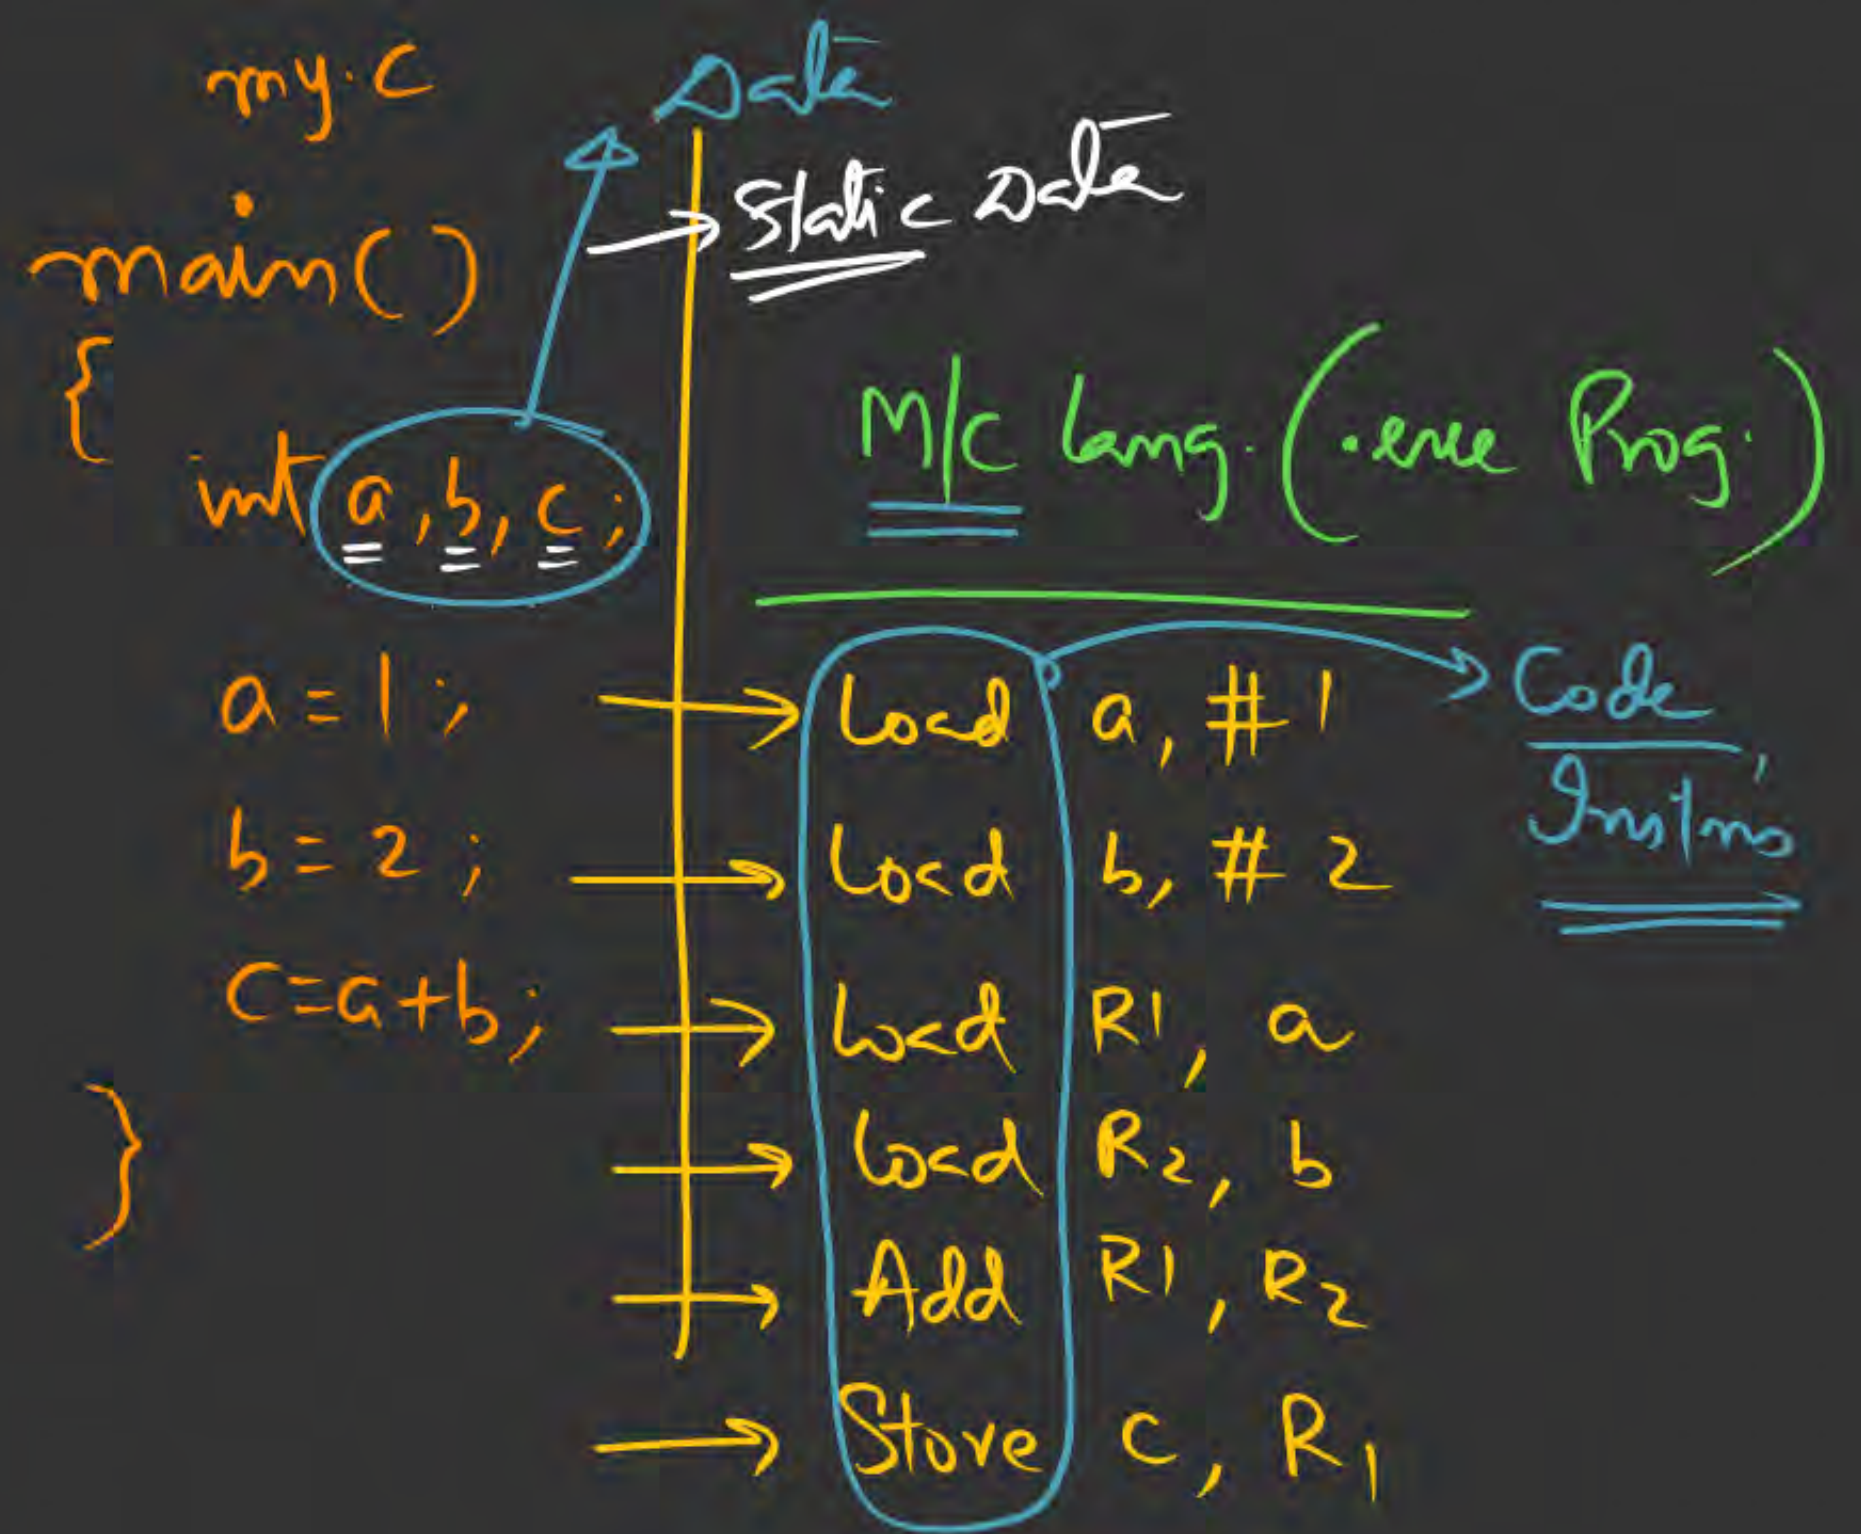 my.c
main()
{
int a, b, c;
a = 1;
b = 2;
c=a+b;
}
Data
Static Data
M/c Lang. (.exe Prog.)
Load a, #1
Load b, #2
Load R1, a
Load R2, b
Add R1, R2
Store c, R1
Code,
Instns